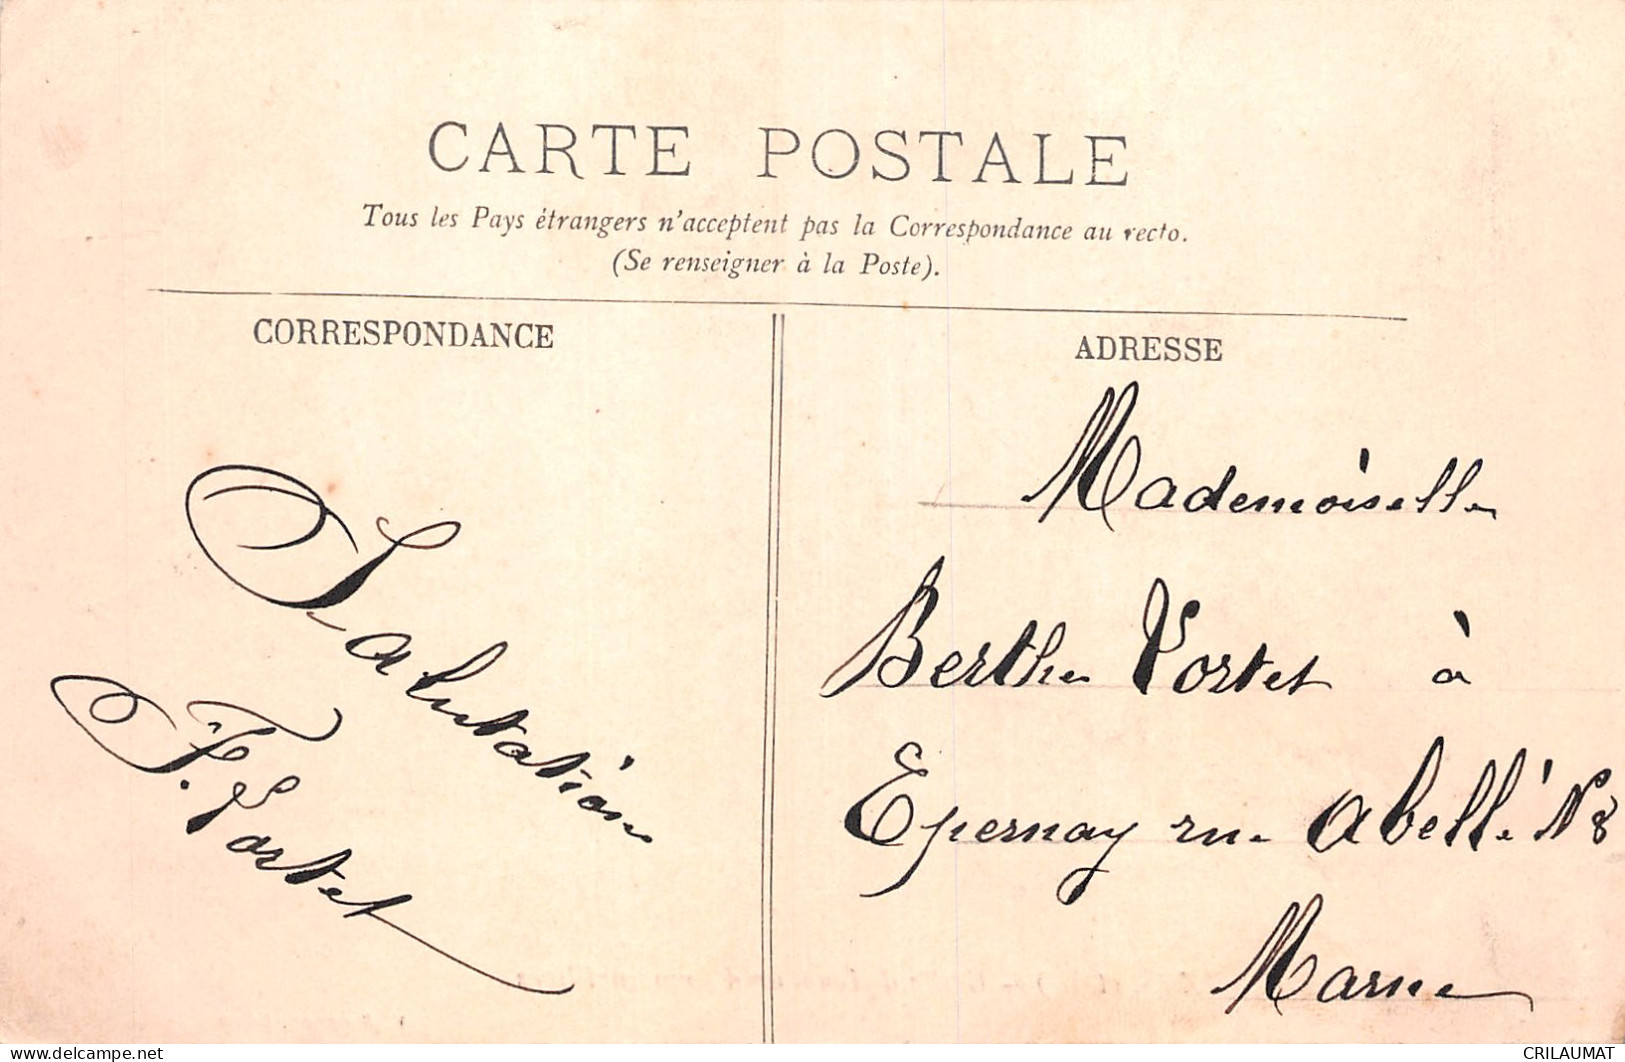 CARTE POSTALE
Tous les Pays étrangers n'acceptent pas la Correspondance au recto.
(Se renseigner à la Poste).
CORRESPONDANCE
Salutation
F. Portet
ADRESSE
Mademoiselle
Berthe Portet à
Epernay rue Abellé N 8
Marne
CRILAUMAT